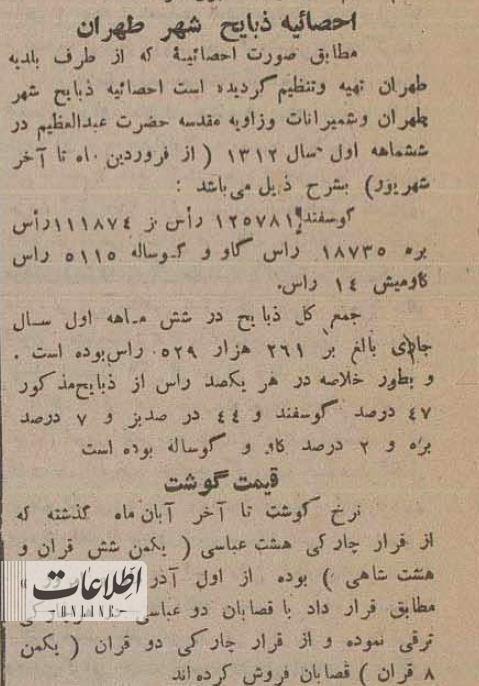 احصائیه ذبایح شهر طهران
مطابق صورت احصائیهٔ که از طرف بلدیه
طهران تهیه وتنظیم گردیده است احصائیه ذبایح شهر
طهران وشمیرانات وزاویه مقدسه حضرت عبدالعظیم در
ششماهه اول سال ۱۳۱۲ ( از فروردین ماه تا آخر
شهریور) بشرح ذیل می باشد :
گوسفند ۱۲۵۷۸۱ رأس بز ۱۱۱۸۷۴ رأس
بره ۱۸۷۳۵ راس گاو و گوساله ۵۱۱۵ راس
گاومیش ۱۴ راس.
جمع کل ذبایح در شش ماهه اول سال
جاری بالغ بر ۲۶۱ هزار ۵۲۹ راس بوده است .
و بطور خلاصه در هر یکصد راس از ذبایح مذکور
۴۷ درصد گوسفند و ۴۴ در صد بز و ۷ درصد
بره و ۲ درصد گاو و گوساله بوده است
قیمت گوشت
نرخ گوشت تا آخر آبان ماه گذشته که
از قرار چارکی هشت عباسی ( یکمن شش قران و
هشت شاهی ) بوده از اول آذر
مطابق قرار داد با قصابان دو عباسی
ترقی نموده و از قرار چارکی دو قران ( یکمن
۸ قران ) قصابان فروش کرده اند
اطلاعات
ONLINE